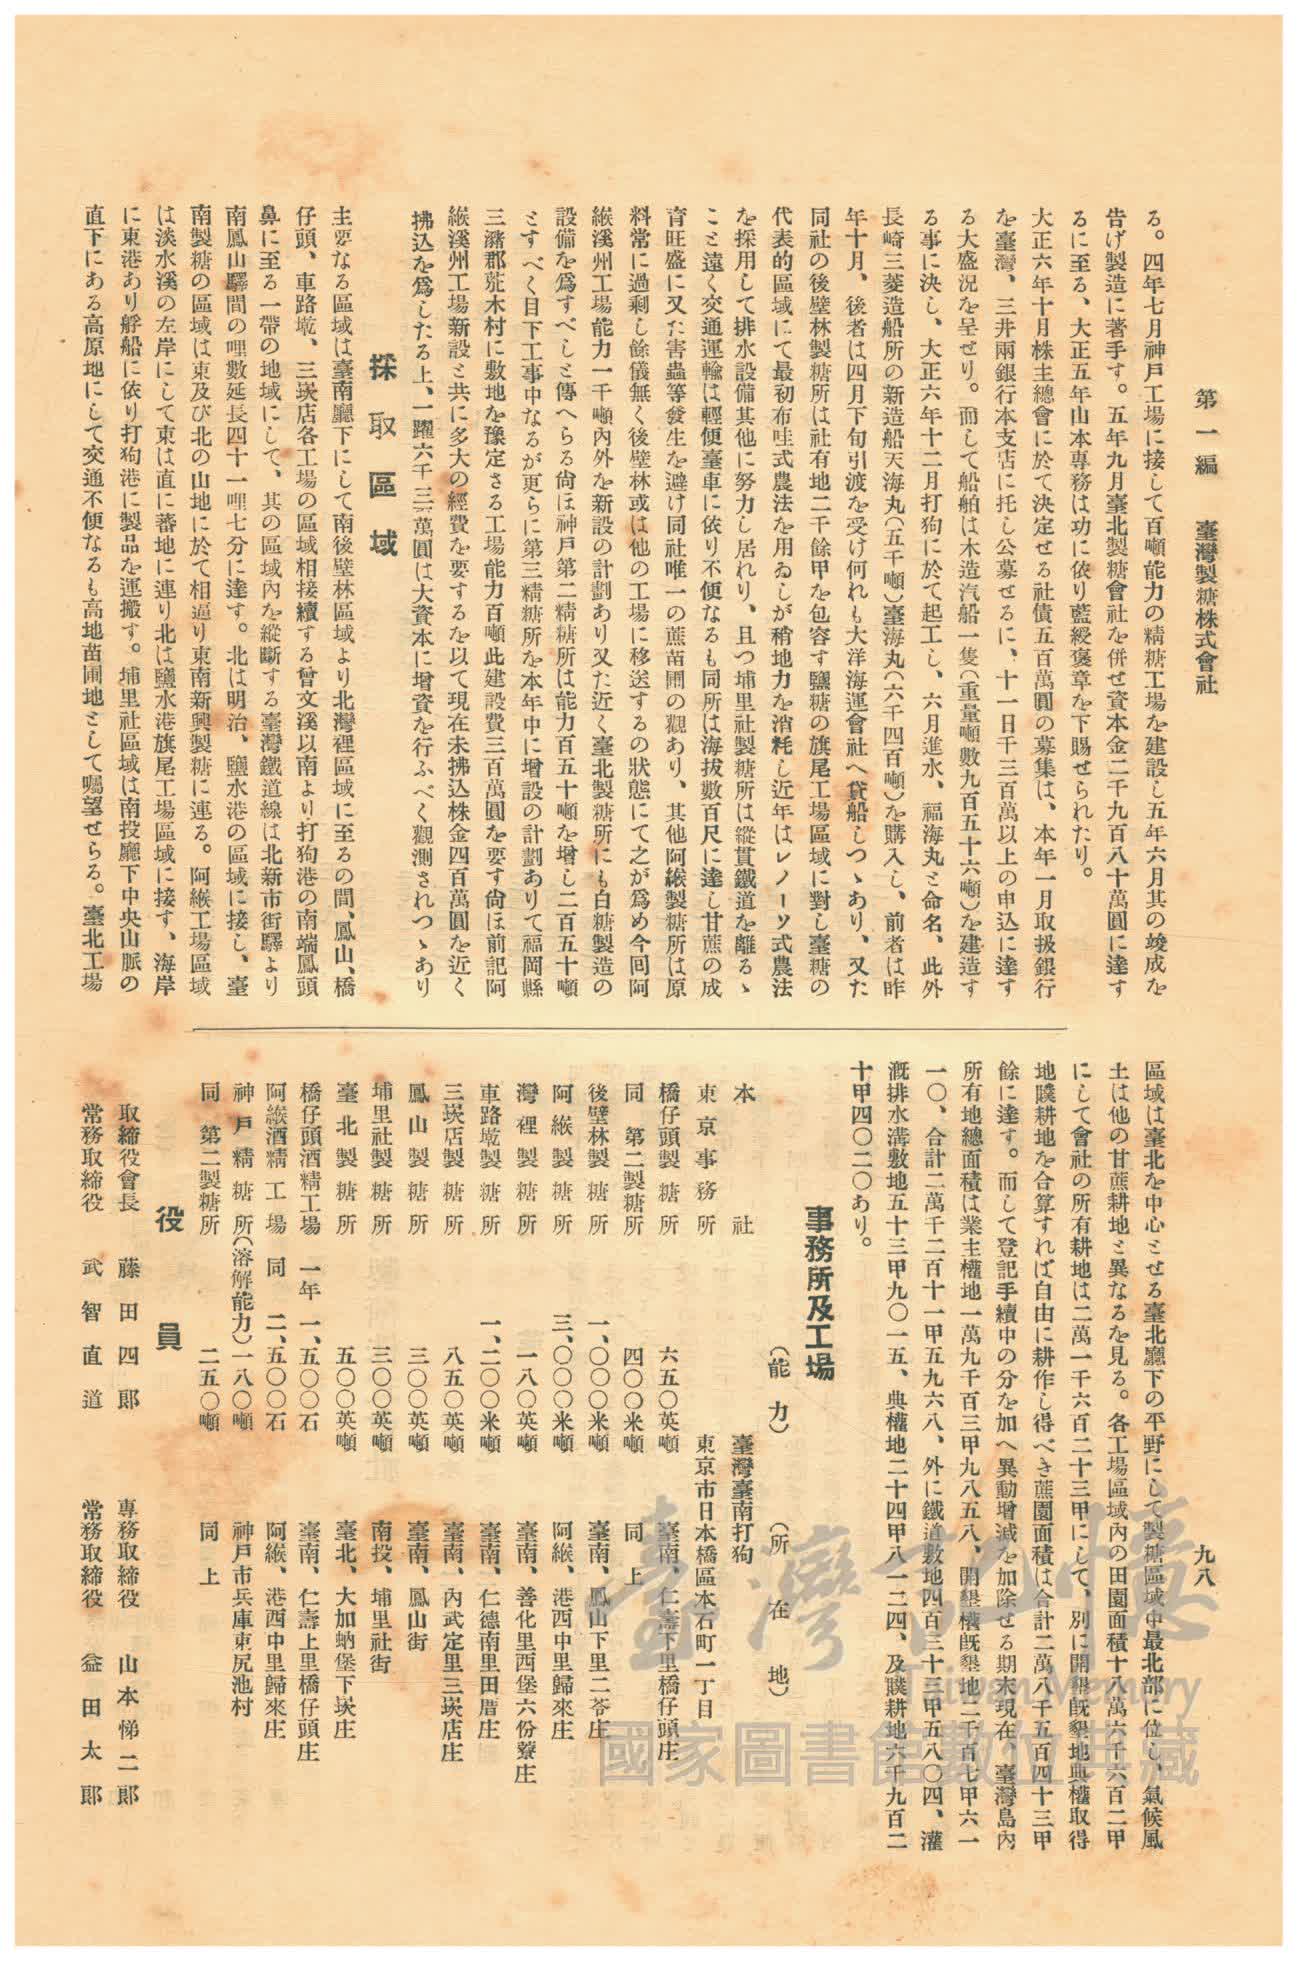 第一編　臺灣製糖株式會社
九八
る。四年七月神戸工場に接して百噸能力の精糖工場を建設し五年六月其の竣成を
告げ製造に著手す。五年九月臺北製糖會社を併せ資本金二千九百八十萬圓に達す
るに至る、大正五年山本專務は功に依り藍綬褒章を下賜せられたり。
大正六年十月株主總會に於て決定せる社債五百萬圓の募集は、本年一月取扱銀行
を臺灣、三井兩銀行本支店に托し公募せるに、十一日千三百萬以上の申込に達す
る大盛況を呈せり。而して船舶は木造汽船一隻(重量噸數九百五十六噸)を建造す
る事に決し、大正六年十二月打狗に於て起工し、六月進水、福海丸と命名、此外
長崎三菱造船所の新造船天海丸(五千噸)臺海丸(六千四百噸)を購入し、前者は昨
年十月、後者は四月下旬引渡を受け何れも大洋海運會社へ貸船しつゝあり、又た
同社の後壁林製糖所は社有地二千餘甲を包容す鹽糖の旗尾工場區域に對し臺糖の
代表的區域にて最初布哇式農法を用ゐしが稍地力を消耗し近年はレノーソ式農法
を採用して排水設備其他に努力し居れり、且つ埔里社製糖所は縱貫鐵道を離るゝ
こと遠く交通運輸は輕便臺車に依り不便なるも同所は海拔數百尺に達し甘蔗の成
育旺盛に又た害蟲等發生を避け同社唯一の蔗苗圃の觀あり、其他阿緱製糖所は原
料常に過剩し餘儀無く後壁林或は他の工場に移送するの狀態にて之が爲め今囘阿
緱溪州工場能力一千噸內外を新設の計劃あり又た近く臺北製糖所にも白糖製造の
設備を爲すべしと傳へらる尙ほ神戸第二精糖所は能力百五十噸を增し二百五十噸
とすべく目下工事中なるが更らに第三精糖所を本年中に增設の計劃ありて福岡縣
三潴郡荒木村に敷地を豫定さる工場能力百噸此建設費三百萬圓を要す尙ほ前記阿
緱溪州工場新設と共に多大の經費を要するを以て現在未拂込株金四百萬圓を近く
拂込を爲したる上、一躍六千三百萬圓は大資本に增資を行ふべく觀測されつゝあり
採取區域
主要なる區域は臺南廳下にして南後壁林區域より北灣裡區域に至るの間、鳳山、橋
仔頭、車路墘、三崁店各工場の區域相接續する曾文溪以南より打狗港の南端鳳頭
鼻に至る一帶の地域にして、其の區域內を縱斷する臺灣鐵道線は北新市街驛より
南鳳山驛間の哩數延長四十一哩七分に達す。北は明治、鹽水港の區域に接し、臺
南製糖の區域は東及び北の山地に於て相逼り東南新興製糖に連る。阿緱工場區域
は淡水溪の左岸にして東は直に蕃地に連り北は鹽水港旗尾工場區域に接す、海岸
に東港あり艀船に依り打狗港に製品を運搬す。埔里社區域は南投廳下中央山脈の
直下にある高原地にして交通不便なるも高地苗圃地として囑望せらる。臺北工場
區域は臺北を中心とせる臺北廳下の平野にして製糖區域中最北部に位し、氣候風
土は他の甘蔗耕地と異なるを見る。各工場區域內の田園面積十八萬六千六百二甲
にして會社の所有耕地は二萬一千六百二十三甲にして、別に開墾旣墾地典權取得
地贌耕地を合算すれば自由に耕作し得べき蔗園面積は合計二萬八千五百四十三甲
餘に達す。而して登記手續中の分を加へ異動增減を加除せる期末現在、臺灣島內
所有地總面積は業主權地一萬九千百三甲九八五八、開墾權旣墾地二千百七甲六一
一〇、合計二萬千二百十一甲五九六八、外に鐵道敷地四百三十三甲五八〇四、灌
漑排水溝敷地五十三甲九〇一五、典權地二十四甲八一二四、及贌耕地六千九百二
十甲四〇二〇あり。
事務所及工場
(能力)　(所在地)
本社　臺灣臺南打狗
東京事務所　東京市日本橋區本石町一丁目
橋仔頭製糖所　六五〇英噸　臺南、仁壽下里橋仔頭庄
同　第二製糖所　四〇〇米噸　同上
後壁林製糖所　一、〇〇〇米噸　臺南、鳳山下里二苓庄
阿緱製糖所　三、〇〇〇米噸　阿緱、港西中里歸來庄
灣裡製糖所　一八〇英噸　臺南、善化里西堡六份藔庄
車路墘製糖所　一、二〇〇米噸　臺南、仁德南里田厝庄
三崁店製糖所　八五〇英噸　臺南、內武定里三崁店庄
鳳山製糖所　三〇〇英噸　臺南、鳳山街
埔里社製糖所　三〇〇英噸　南投、埔里社街
臺北製糖所　五〇〇英噸　臺北、大加蚋堡下崁庄
橋仔頭酒精工場　一年　一、五〇〇石　臺南、仁壽上里橋仔頭庄
阿緱酒精工場　同　二、五〇〇石　阿緱、港西中里歸來庄
神戸精糖所(溶解能力)一八〇噸　神戸市兵庫東尻池村
同　第二製糖所　二五〇噸　同上
役員
取締役會長　藤田四郎　專務取締役　山本悌二郎
常務取締役　武智直道　常務取締役　益田太郎
臺灣記憶
Taiwan Memory
國家圖書館數位典藏